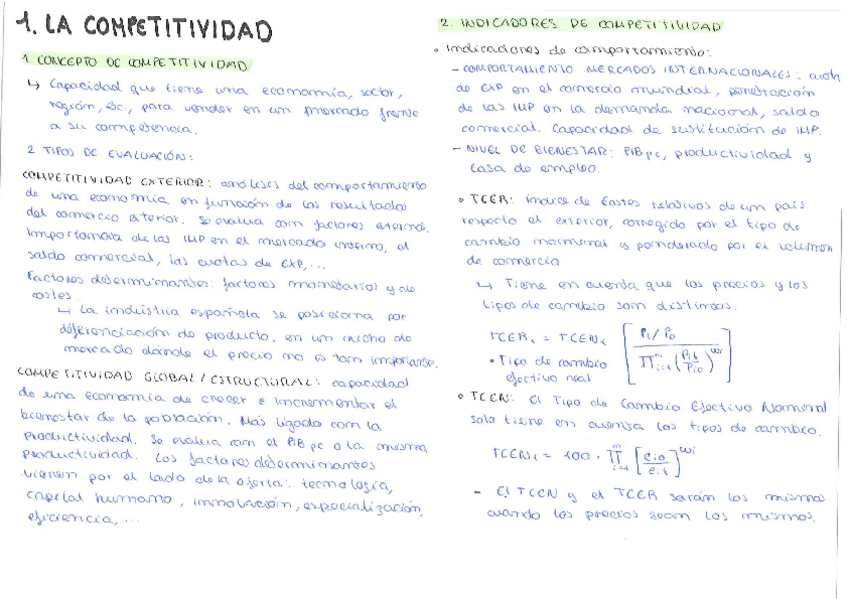 1. LA COMPETITIVIDAD
1. CONCEPTO DE COMPETITIVIDAD
↳ Capacidad que tiene una economía, sector,
región, etc., para vender en un mercado frente
a su competencia.
2 TIPOS DE EVALUACIÓN:
COMPETITIVIDAD EXTERIOR: análisis del comportamiento
de una economía en función de los resultados
del comercio exterior. Se evalua con factores externos.
Importancia de las IMP en el mercado interno, el
saldo comercial, las cuotas de EXP,...
Factores determinantes: factores monetarios y de
costes.
↳ La industria española se posiciona por
diferenciación de producto, en un nicho de
mercado dónde el precio no es tan importante.
COMPETITIVIDAD GLOBAL / ESTRUCTURAL: capacidad
de una economía de crecer e incrementar el
bienestar de la población. Más ligado con la
productividad. Se evalua con el PIB pc o la misma
productividad. Los factores determinantes
vienen por el lado de la oferta: tecnología,
capital humano, innovación, especialización,
eficiencia, ...
2. INDICADORES DE COMPETITIVIDAD
• Indicadores de comportamiento:
- COMPORTAMIENTO MERCADOS INTERNACIONALES:
de EXP en el comercio mundial, penetración
de las IMP en la demanda nacional, saldo
comercial. Capacidad de sustitución de IMP.
- NIVEL DE BIENESTAR: PIB pc, productividad y
tasa de empleo.
• TCER: índice de costes relativos de un país
respecto el exterior, corregido por el tipo de
cambio nominal y ponderado por el volumen
de comercio
↳ Tiene en cuenta que los precios y los
tipos de cambio son distintos.
TCERₜ = TCENₜ [ (Pₜ/P₀) / (∏ⁿᵢ₌₁ (Pᵢₜ/Pᵢ₀)^wᵢ) ]
• Tipo de cambio
efectivo real
• TCEN: El Tipo de Cambio Efectivo Nominal
solo tiene en cuenta los tipos de cambio.
TCENₜ = 100 · ∏ⁿᵢ₌₁ [eᵢ₀/eᵢₜ]^wᵢ
- El TCEN y el TCER serán los mismos
cuando los precios sean los mismos.